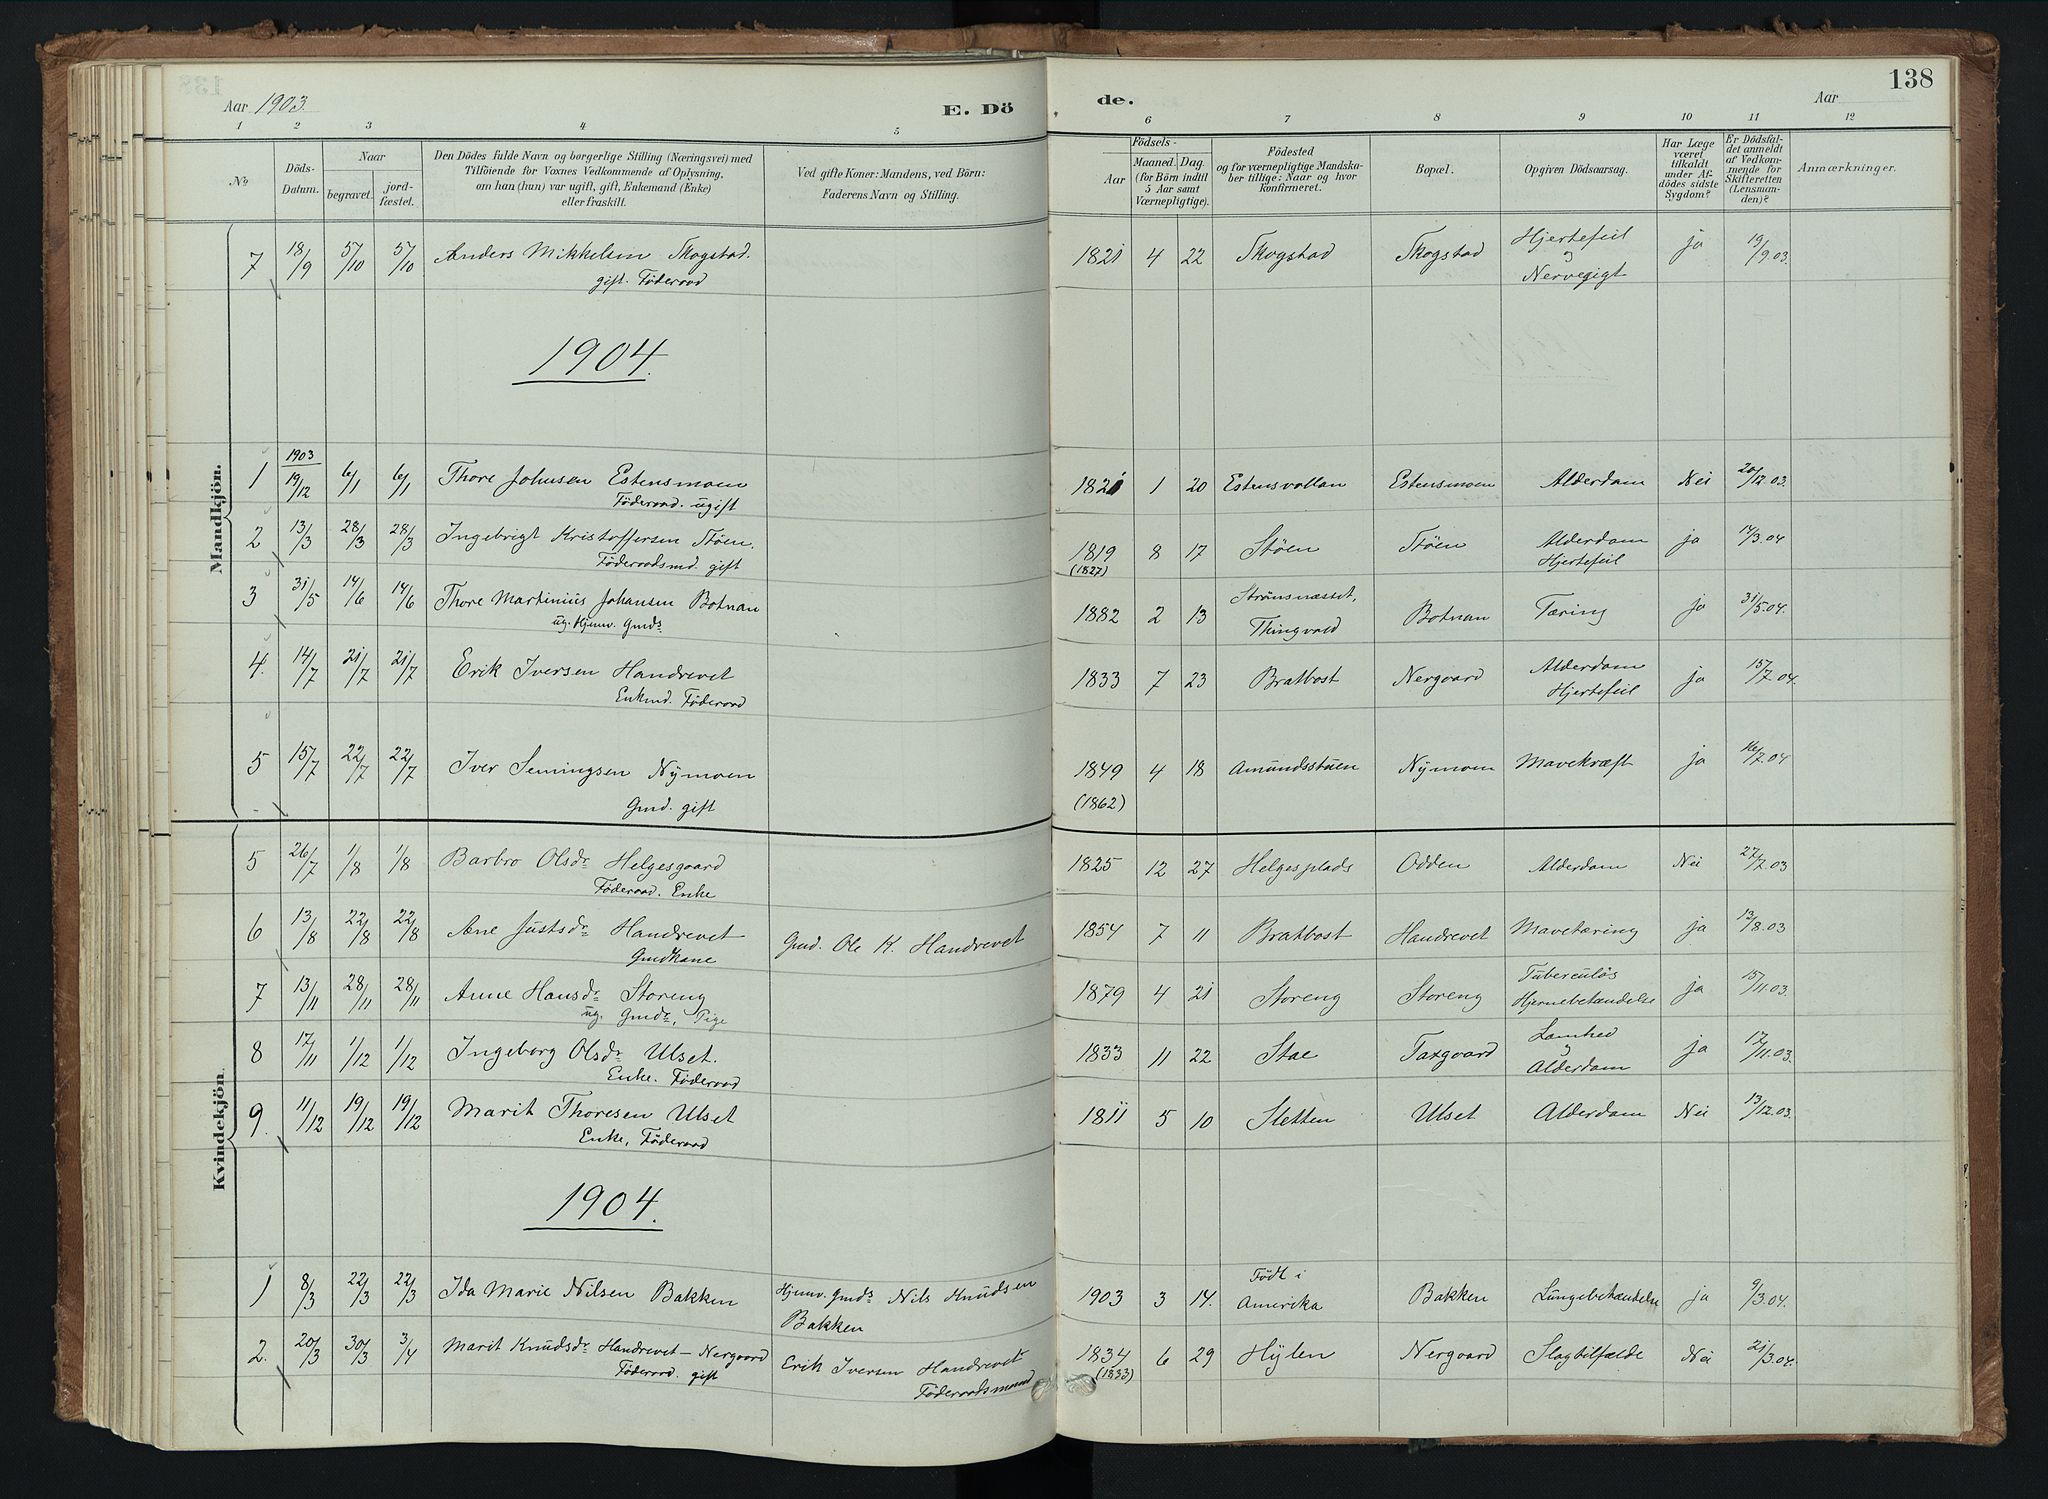 138
Aar 1903.
E. Dö
de.
Aar
1 2 3 4 5 6 7 8 9 10 11 12
No
Döds-Datum.
Naar
begravet.
jord-fæstet.
Den Dödes fulde Navn og borgerlige Stilling (Næringsvei) med
Tilföiende for Voxnes Vedkommende af Oplysning,
om han (hun) var ugift, gift, Enkemand (Enke)
eller fraskilt.
Ved gifte Koner: Mandens, ved Börn:
Faderens Navn og Stilling.
Födsels-
Aar
Maaned. Dag.
(for Börn indtil
5 Aar samt
Værnepligtige).
Födested
og for værnepligtige Mandska-
ber tillige: Naar og hvor
konfirmeret.
Bopæl.
Opgiven Dödsaarsag.
Har Læge
været
tilkaldt
under Af-
dödes sidste
Sygdom?
Er Dödsfal-
det anmeldt
af Vedkom-
mende for
Skifteretten
(Lensman-
den)?
Anmærkninger.
Mandkjön.
7 18/9 5/10 5/10 Anders Mikkelsen Skogstad. 1821 4 22 Skogstad Skogstad Hjertefeil
og
gift. Föderaad Nervegigt ja 19/9.03.
1904.
1903
1 19/12 6/1 6/1 Thore Johnsen Estensmoen 1821 1 20 Estensvollan Estensmoen Alderdom Nei 20/12.03.
Föderaad. ugift
2 13/3 28/3 28/3 Ingebrigt Kristoffersen Stöen. 1819 8 17 Stöen Stöen Alderdom ja 14/3.04
Föderaadsmd. gift (1827) Hjertefeil
3 31/5 14/6 14/6 Thore Martinius Johansen Botnan 1882 2 13 Strömsnæsset, Botnan Tæring ja 31/5.04.
ug. Hjemv. Gmds Thingvold
4. 14/7 21/7 21/7 Erik Iversen Handrevet 1833 7 23 Bratbost Nergaard Alderdom ja 15/7.04.
Enkmd. Föderaad Hjertefeil
5 15/7 22/7 22/7 Iver Semingsen Nymoen 1849 4 18 Amundsstuen Nymoen Mavekræft ja 16/7.04
Gmd. gift (1862)
Kvindekjön.
5 26/7 1/8 1/8 Barbro Olsdr Helgesgaard 1825 12 27 Helgesplads Odden Alderdom Nei 27/7.03
Föderaad. Enke
6 13/8 22/8 22/8 Ane Justsdr Handrevet Gmd. Ole K. Handrevet 1854 7 11 Bratbost Handrevet Mavetæring ja 13/8.03
Gmdkone
7 13/11 28/11 28/11 Anne Hansdr Storeng 1879 4 21 Storeng Storeng Tuberculös ja 15/11.03.
ug. Gmdr, Pige Hjernebetændelse
8 17/11 1/12 1/12 Ingeborg Olsdr Ulset. 1833 11 22 Stae Taxgaard Lamhed ja 17/11.03.
og
Enke. Föderaad Alderdom
9. 11/12 19/12 19/12 Marit Thoresen Ulset 1811 5 10 Sletten Ulset Alderdom Nei 13/12.03.
Enke, Föderaad
1904.
1 8/3 22/3 22/3 Ida Marie Nilsen Bakken Hjemv. Gmds Nils Knudsen 1903 3 14. Födt i Bakken Lungebetændelse ja 9/3.04.
Bakken Amerika
2. 20/3 30/3 3/4 Marit Knudsdr Handrevet-Nergaard Erik Iversen Handrevet 1834 6 29 Hylen Nergaard Slagtilfælde Nei 21/3.04.
Föderaad. gift Föderaadsmand (1833)